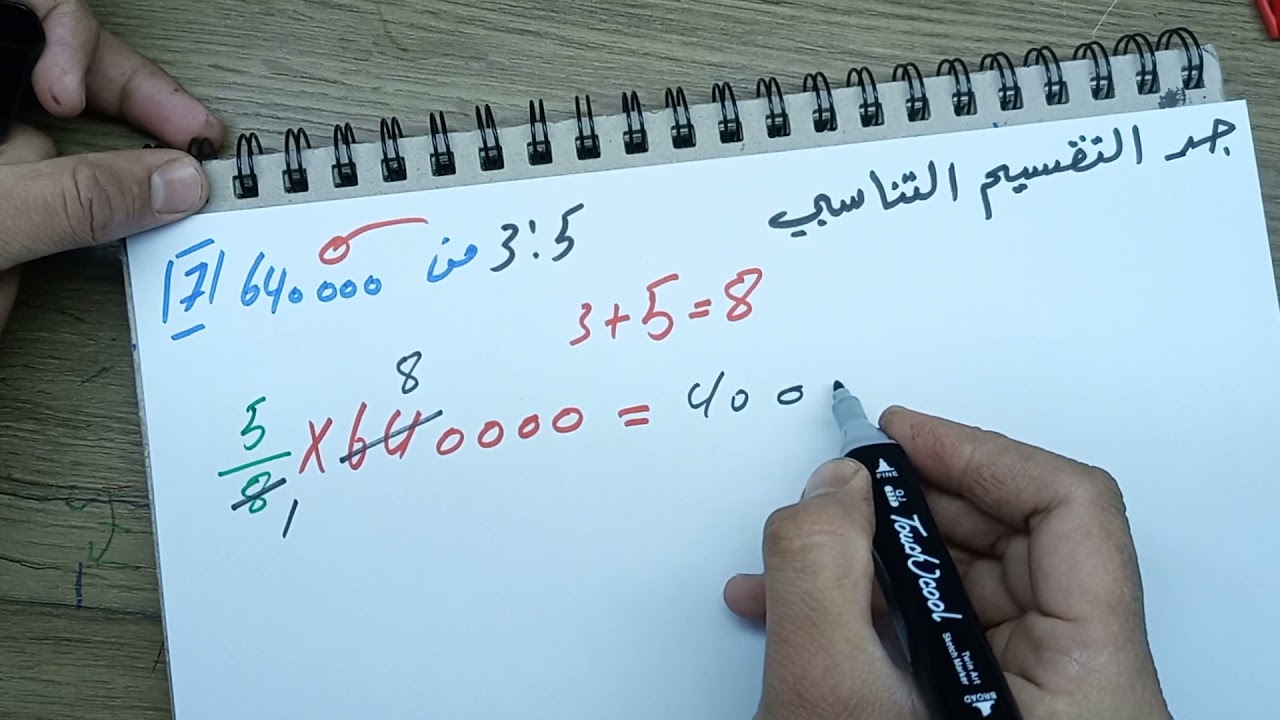 جد التقسيم التناسبي
7 640000 من 3:5
3+5=8
8
5/8 X 640000 = 400
1
FINE
Touch cool
Twin Art
Sketch Marker
BROAD